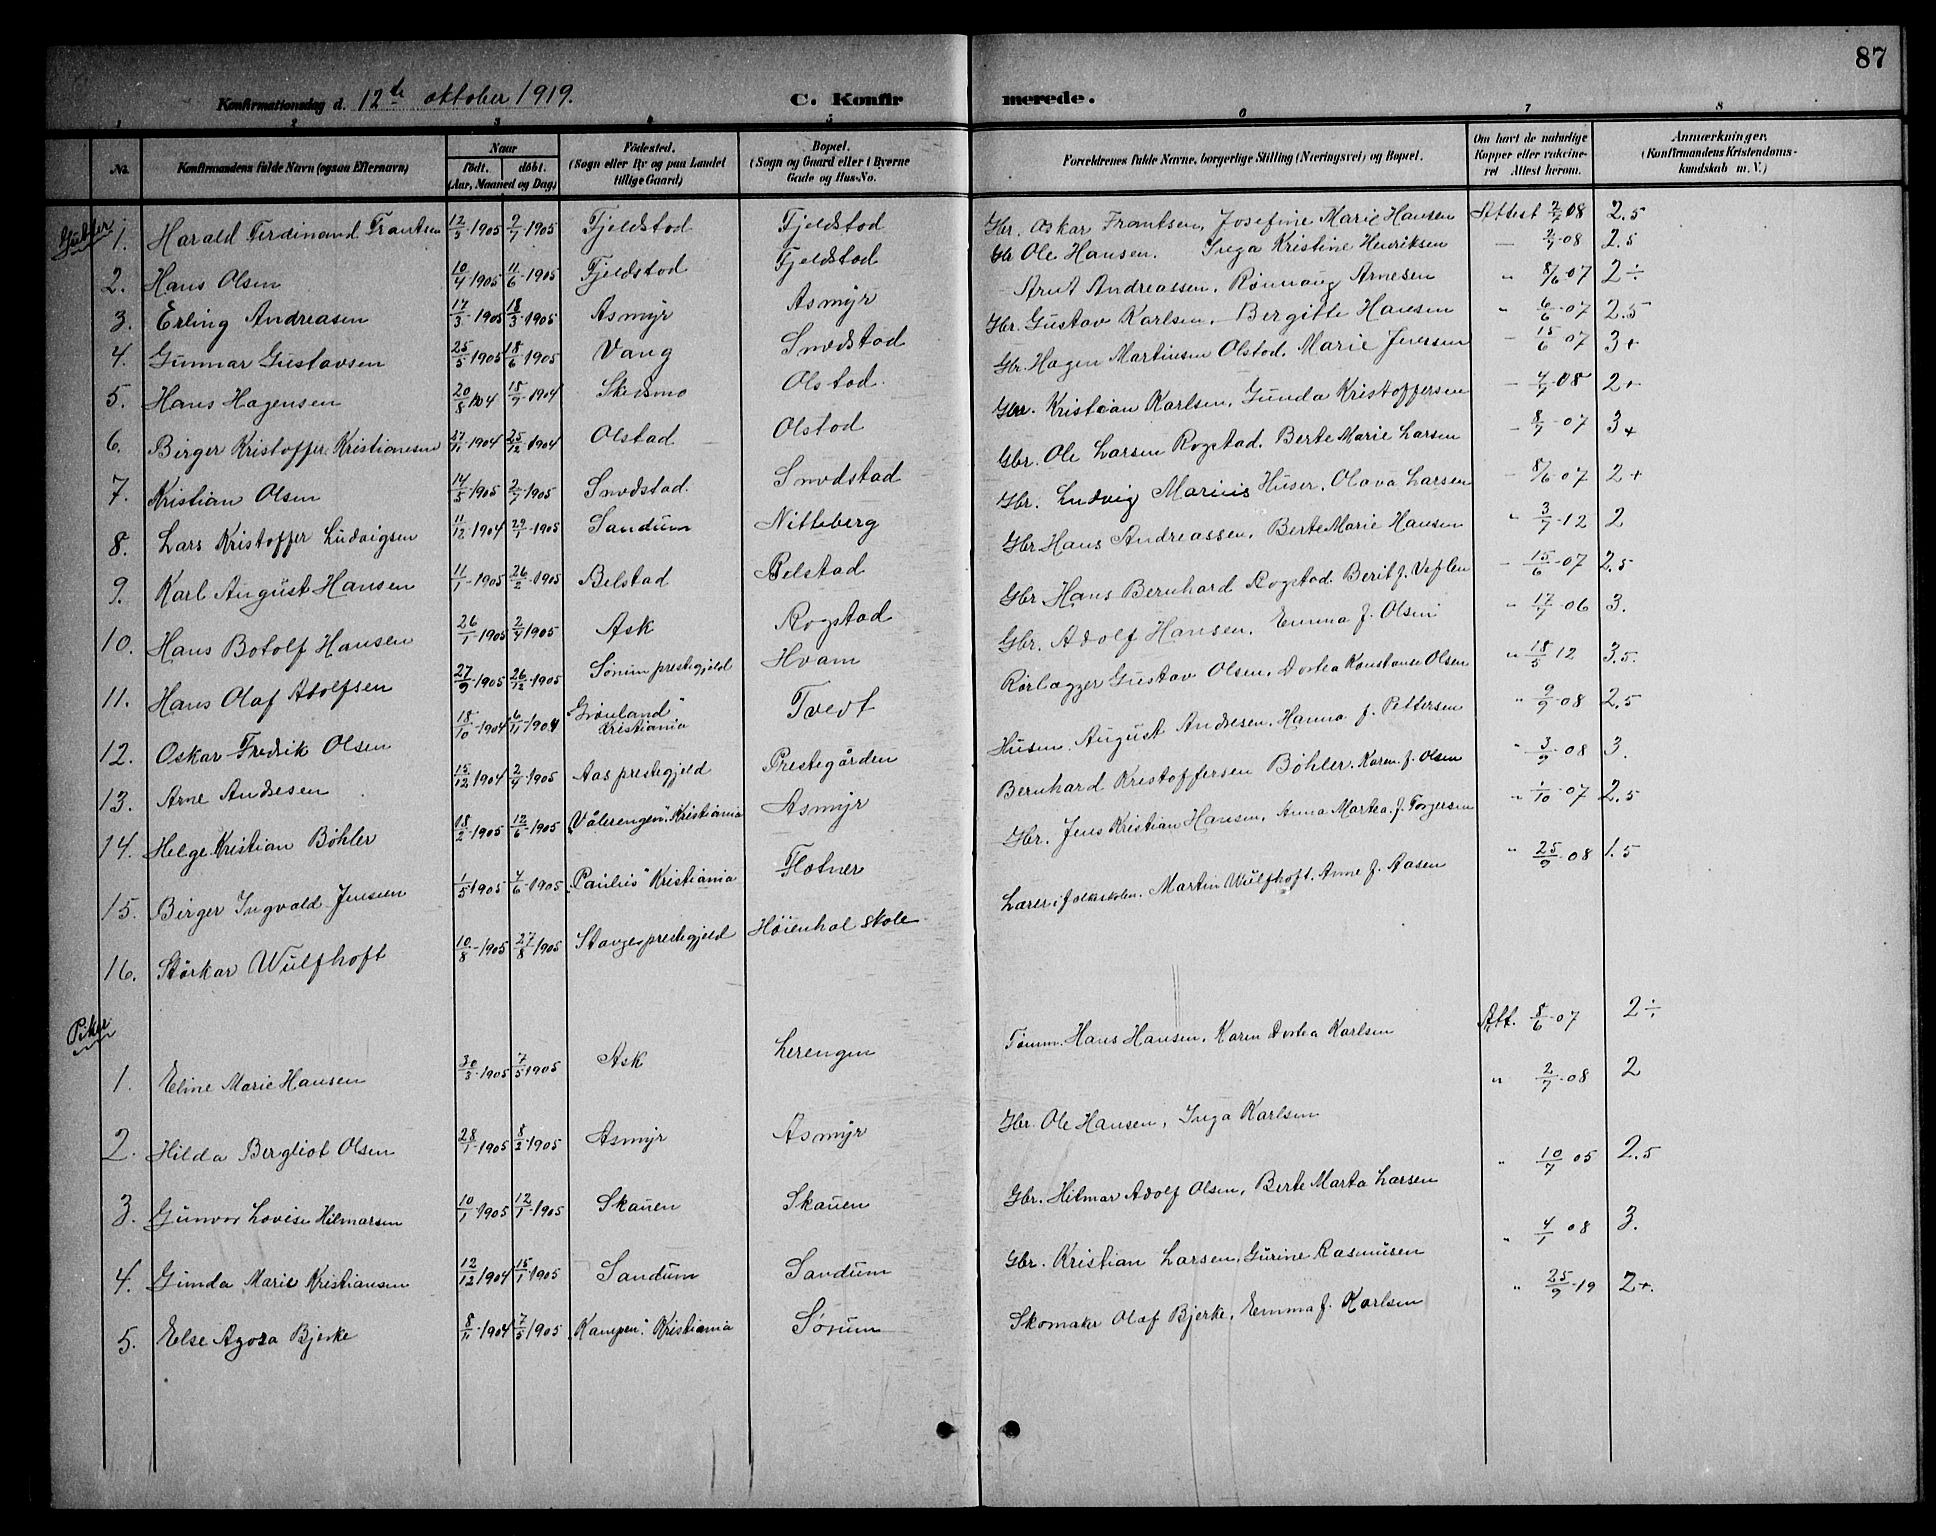 87
Konfirmationsdag d. 12te oktober 1919. C. Konfirmerede.
1 2 3 4 5 6 7 8
No. Konfirmandens fulde Navn (ogsaa Efternavn) Naar født. døbt. (Aar, Maaned og Dag) Fødested. (Sogn eller By og paa Landet tillige Gaard) Bopæl. (Sogn og Gaard eller i Byerne Gade og Hus-No. Forældrenes fulde Navne, borgerlige Stilling (Næringsvei) og Bopæl. Om havt de naturlige Kopper eller vakcineret Attest herom. Anmærkninger. (Konfirmandens Kristendomskundskab m. V.)
Gutter
1. Harald Ferdinand Frantsen 12/5 1905 2/7 1905 Fjeldstad Fjeldstad Gbr. Oskar Frantsen, Josefine Marie Hansen Attest 2/7 08 2.5
2. Hans Olsen 10/4 1905 11/6 1905 Fjeldstad Fjeldstad Gbr Ole Hansen. Inga Kristine Henriksen — 2/7 08 2.5
3. Erling Andreasen 17/3 1905 18/3 1905 Asmyr Asmyr Arnt Andreassen, Rønnaug Arnesen " 8/6 07 2÷
4. Gunnar Gustavsen 25/5 1905 18/6 1905 Vang Smedstad Gbr. Gustav Karlsen, Bergitte Hansen " 6/6 07 2.5
5. Hans Hagensen 20/8 1904 18/9 1904 Skedsmo Olstad. Gbr. Hagen Martinsen Olstad. Marie Jensen — 15/6 07 3+
6. Birger Kristoffer Kristiansen 27/11 1904 25/12 1904 Olstad Olstad Gbr. Kristian Karlsen, Gunda Kristoffersen — 4/7 08 2+
7. Kristian Olsen 14/5 1905 2/7 1905 Smedstad. Smedstad Gbr. Ole Larsen Rogstad. Berte Marie Larsen — 8/7 07 3+
8. Lars Kristoffer Ludvigsen 11/12 1904 29/1 1905 Sandum Nitteberg Gbr. Ludvig Marius Huser, Olava Larsen — 8/6 07 2+
9. Karl August Hansen 11/1 1905 26/2 1905 Belstad Belstad Gbr Hans Andreassen, Berte Marie Hansen " 3/7 12 2
10. Hans Botolf Hansen 26/1 1905 2/4 1905 Ask Rogstad Gbr Hans Bernhard Rogstad. Berit J. — 15/6 07 2.5
11. Hans Olaf Adolfsen 27/9 1905 26/12 1905 Sørum prestegjeld Hvam Gbr. Adolf Hansen, Emma J. Olsen " 17/7 06 3.
12. Oskar Fredrik Olsen 18/10 1904 6/11 1904 "Grønland" Kristiania Tvedt Rørlægger Gustav Olsen, Dortea Konstanse Olsen " 18/5 12 3.5.
13. Arne Andresen 15/12 1904 2/4 1905 Aas prestegjeld Prestegården Husm. August Andresen, Hanna J. Pettersen " 9/9 08 2.5
14. Helge Kristian Bøhler 18/2 1905 12/6 1905 "Vålerengen". Kristiania Asmyr Bernhard Kristoffersen Bøhler. Karen J. Olsen " 3/9 08 3.
15. Birger Ingvald Jensen 1/5 1905 4/6 1905 "Paulus" Kristiania Flotner Gbr. Jens Kristian Hansen, Anna Martea J. Torgersen " 1/10 07 2.5
16. Størkar Wulfhoft 10/8 1905 27/8 1905 Stange prestegjeld Høienhal skole Lærer i folkeskolen. Martin Wulfhoft, Anne J. Aasen " 25/9 08 1.5
Piker
1. Eline Marie Hansen 30/3 1905 7/5 1905 Ask Lerengen Tømm. Hans Hansen, Karen Dortea Karlsen Att. 8/6 07 2÷
2. Hilda Bergliot Olsen 28/1 1905 8/2 1905 Asmyr Asmyr Gbr. Ole Hansen, Inga Karlsen " 2/7 08 2
3. Gunvor Lovise Hilmarsen 10/1 1905 12/1 1905 Skauen Skauen Gbr. Hilmar Adolf Olsen, Berte Marta Larsen " 10/7 05 2.5
4. Gunda Marie Kristiansen 12/12 1904 15/1 1905 Sandum Sandum Gbr. Kristian Larsen, Gurine Rasmusen " 4/1 08 3.
5. Else Agosa Bjerke 8/11 1904 7/5 1905 "Kampen". Kristiania Sørum Skomaker Olaf Bjerke, Emma J. Karlsen " 25/9 19 2+.